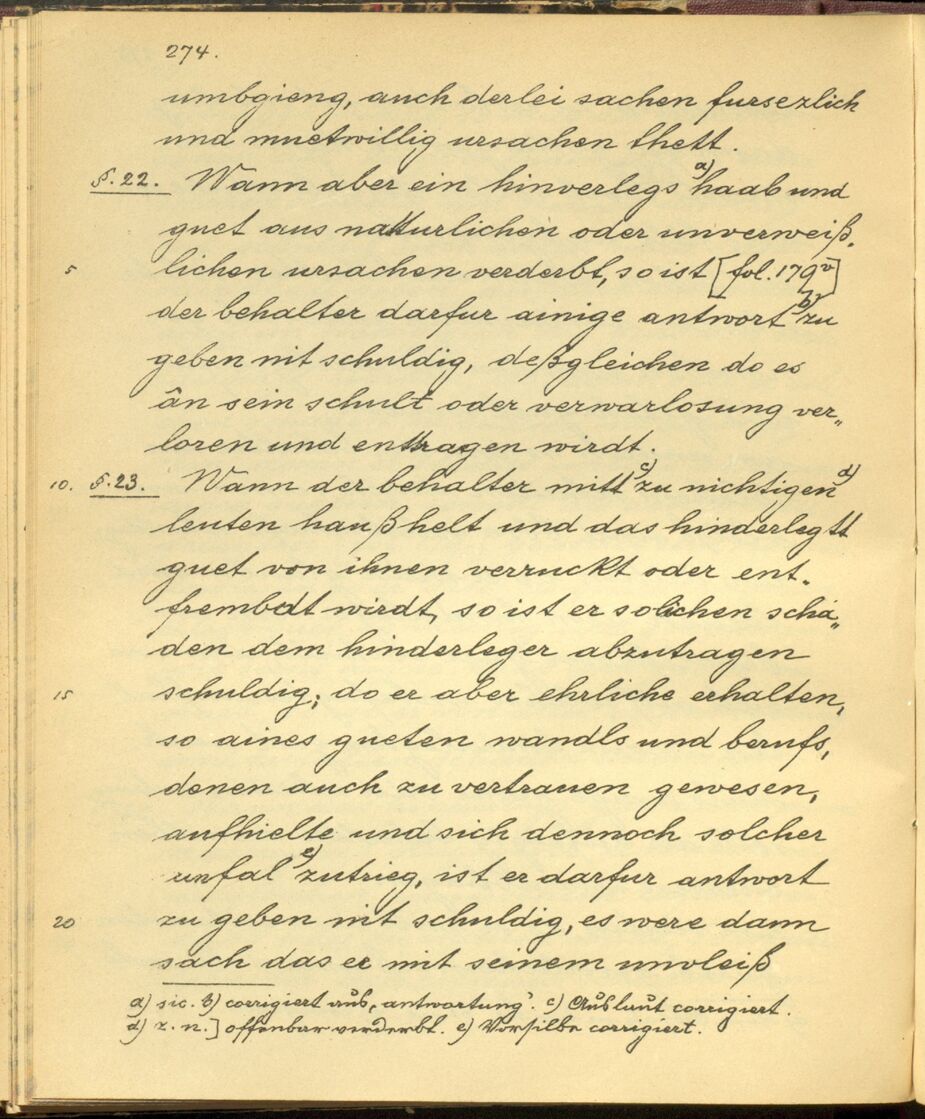 274.
umbgieng, auch derlei sachen fursezlich
und muetwillig ursachen thett.
§. 22. Wann aber ein hinverlegs a) haab und
guet aus natturlichen oder unverweiß-
5 lichen ursachen verderbt, so ist [fol. 179v]
der behalter darfur ainige antwort b) zu
geben nit schuldig, deßgleichen do es
ân sein schult oder verwarlosung ver„
loren und enttragen wirdt.
10. §. 23. Wann der behalter mitt c) zu nichtigen d)
leuten haußhelt und das hinderlegtt
guet von ihnen verruckt oder ent-
frembdt wirdt, so ist er solichen schä„
den dem hinderleger abzutragen
15 schuldig; do er aber ehrliche erhalten,
so aines gueten wandls und berufs,
denen auch zu vertrauen gewesen,
aufhielte und sich dennoch solcher
unfal e) zutrieg, ist er darfur antwort
20 zu geben nit schuldig, es were dann
sach das er mit seinem unvleiß
a) sic. b) corrigiert aus „antwortung‘. c) Auslaut corrigiert.
d) z. n.] offenbar verderbt. e) Vorsilbe corrigiert.